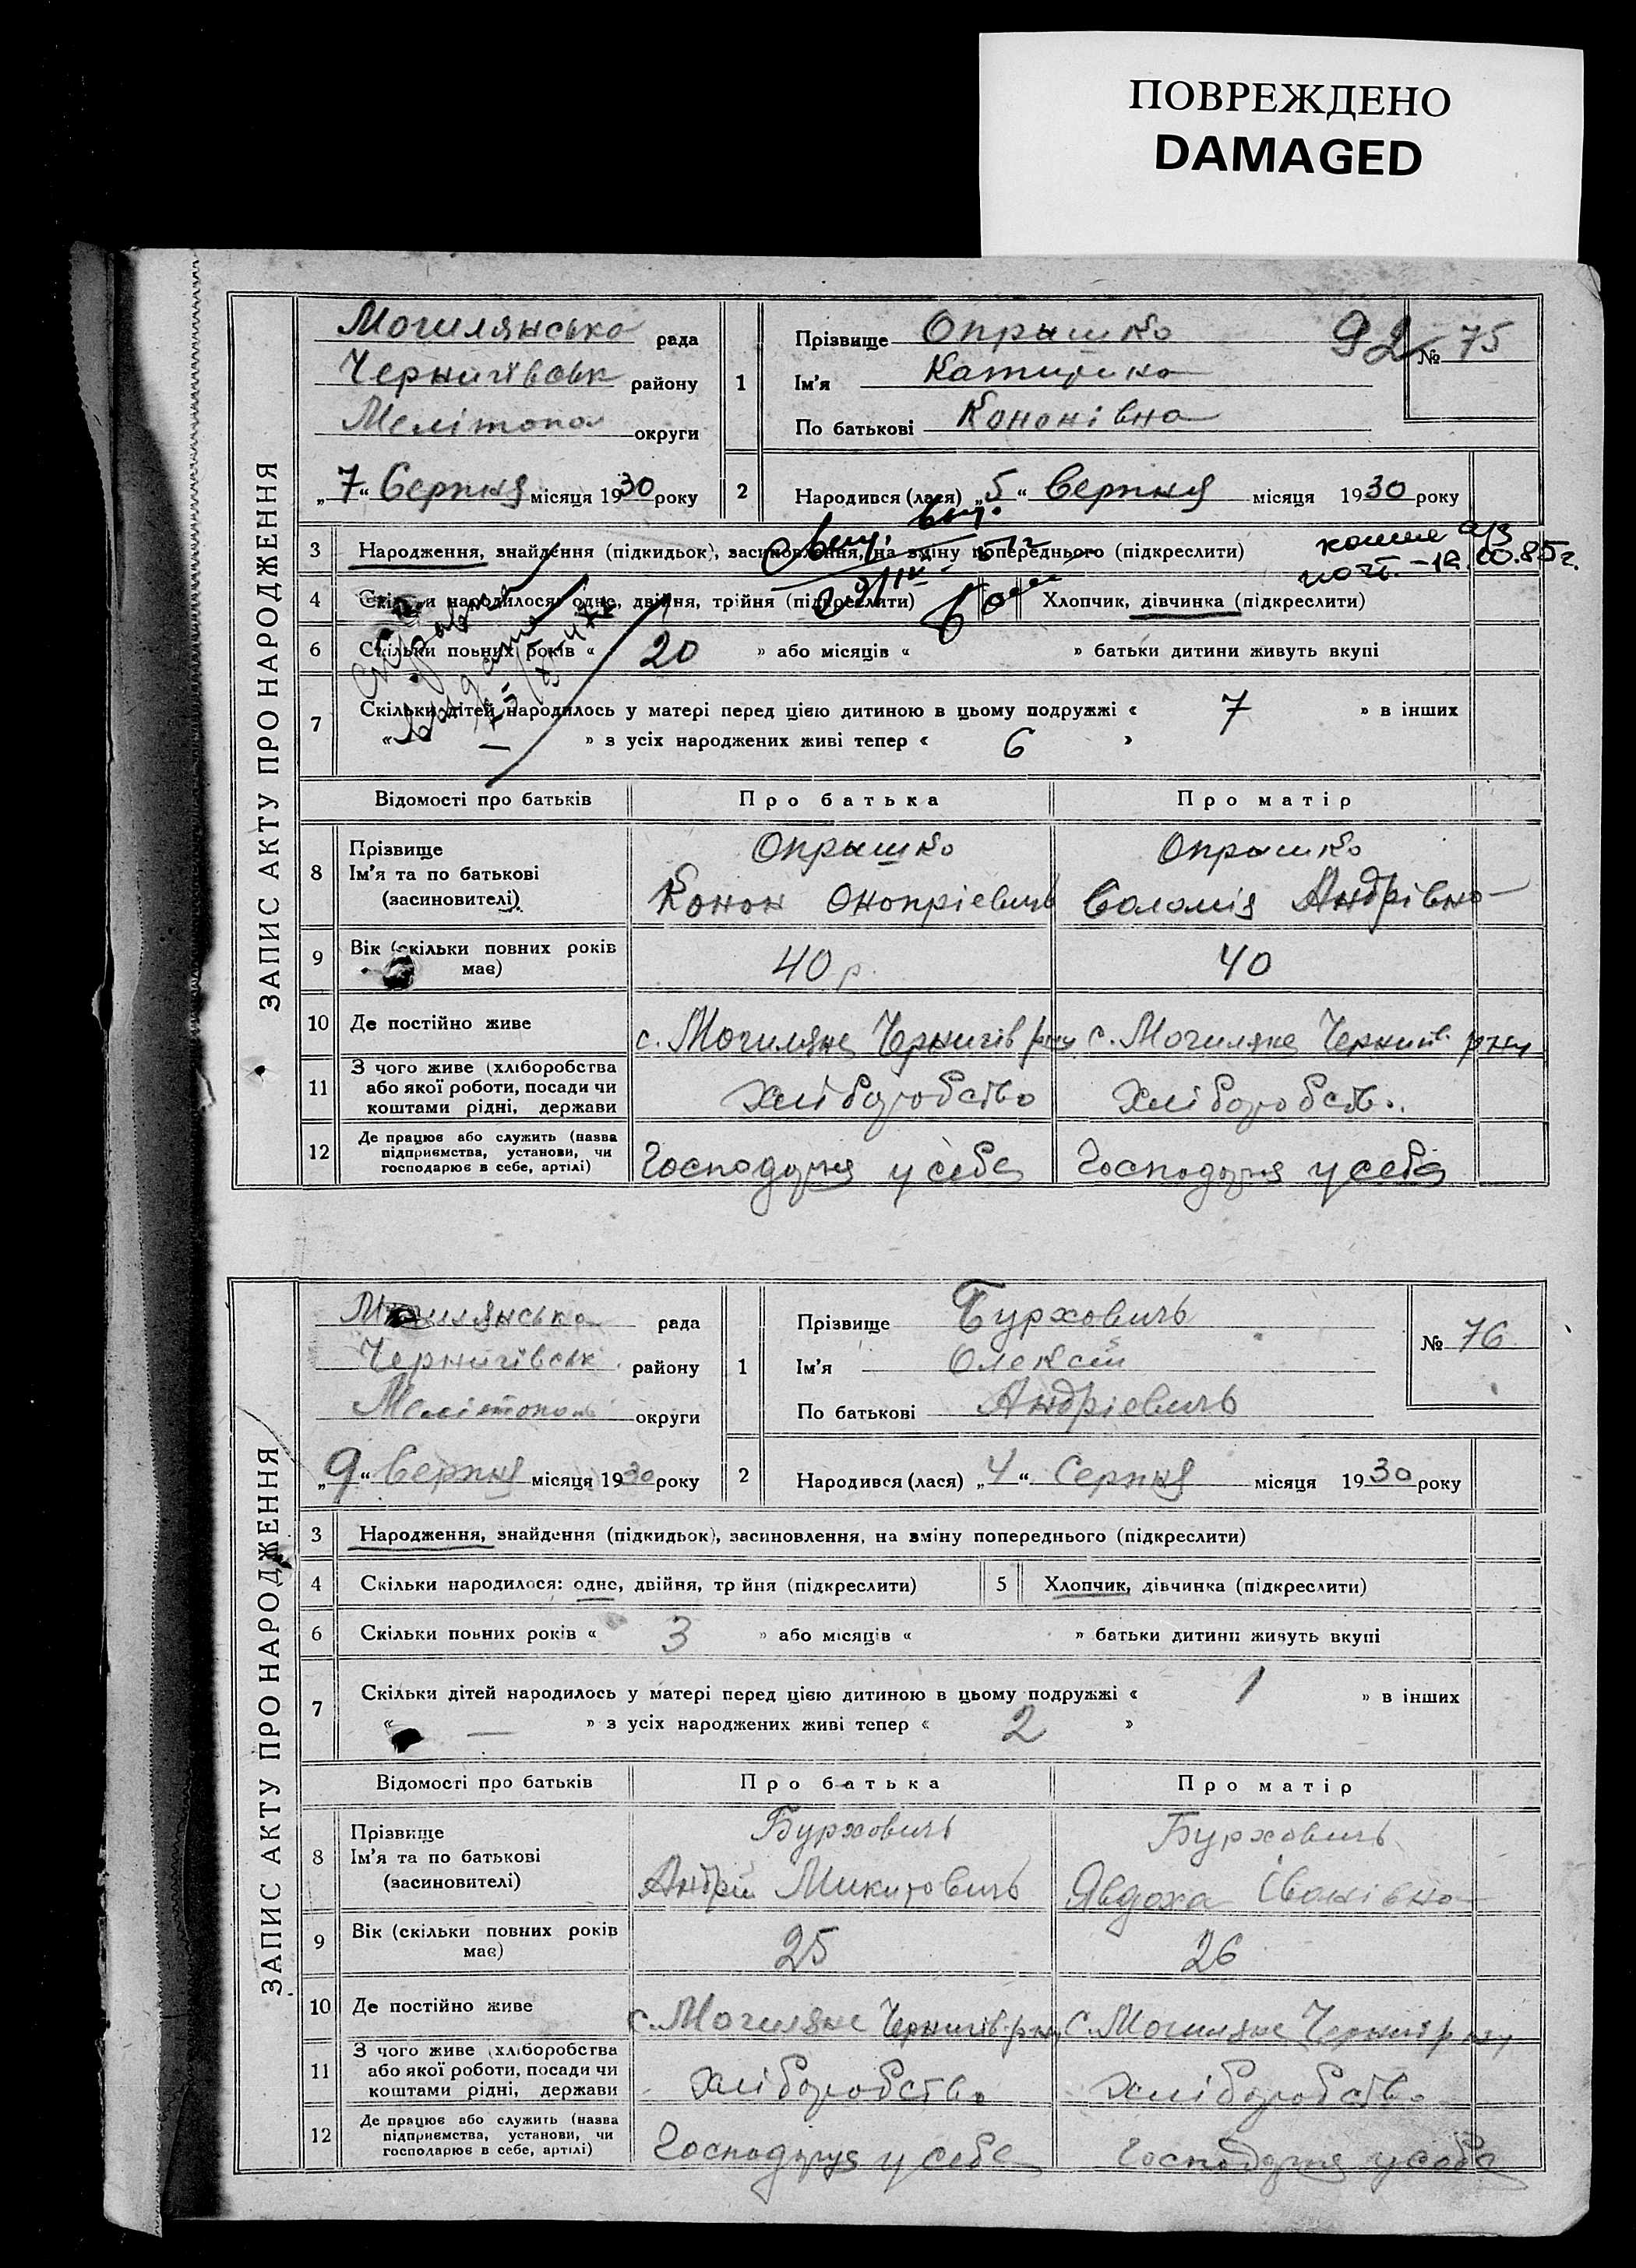 ПОВРЕЖДЕНО
DAMAGED
ЗАПИС АКТУ ПРО НАРОДЖЕННЯ
Могилянська рада
Чернигівськ району
Мелітопол округи
„7“ Серпня місяця 1930 року
1
Прізвище Опрышко
Ім'я Катирина
По батькові Кононівна
92 № 75
2 Народився (лася) „5“ Серпня місяця 1930 року
3 Народження, знайдення (підкидьок), засиновлення, на зміну попереднього (підкреслити)
4 Скільки народилося: одне, двійня, трійня (підкреслити) Хлопчик, дівчинка (підкреслити)
6 Скільки повних років « 20 » або місяців « » батьки дитини живуть вкупі
7 Скільки дітей народилось у матері перед цією дитиною в цьому подружжі « 7 » в інших
« — » з усіх народжених живі тепер « 6 »
Відомості про батьків Про батька Про матір
8 Прізвище Ім'я та по батькові (засиновителі)
Опрышко Опрышко
Конон Онопріевичь Соломія Андрівна
9 Вік (скільки повних років має) 40 р. 40
10 Де постійно живе с. Могиляне Чернигів рну с. Могиляне Чернигів. рну
11 З чого живе (хліборобства або якої роботи, посади чи коштами рідні, держави Хліборобство Хліборобств.
12 Де працює або служить (назва підприємства, установи, чи господарює в себе, артілі) Господарує у себе Господарує у себе
ЗАПИС АКТУ ПРО НАРОДЖЕННЯ
Могилянська рада
Чернигівськ району
Мелітопол округи
„9“ Серпня місяця 1930 року
1
Прізвище Бурховичь
Ім'я Олексій
По батькові Андріевичь
№ 76
2 Народився (лася) „4“ Серпня місяця 1930 року
3 Народження, знайдення (підкидьок), засиновлення, на зміну попереднього (підкреслити)
4 Скільки народилося: одне, двійня, трійня (підкреслити) 5 Хлопчик, дівчинка (підкреслити)
6 Скільки повних років « 3 » або місяців « » батьки дитини живуть вкупі
7 Скільки дітей народилось у матері перед цією дитиною в цьому подружжі « 1 » в інших
« — » з усіх народжених живі тепер « 2 »
Відомості про батьків Про батька Про матір
8 Прізвище Ім'я та по батькові (засиновителі)
Бурховичь Бурховичь
Андрій Микитовичь Явдоха Іванівна
9 Вік (скільки повних років має) 25 26
10 Де постійно живе с. Могиляне Чернигів рну с. Могиляне Черниг рну
11 З чого живе (хліборобства або якої роботи, посади чи коштами рідні, держави Хліборобство Хліборобство
12 Де працює або служить (назва підприємства, установи, чи господарює в себе, артілі) Господарує у себе Господарує у себе